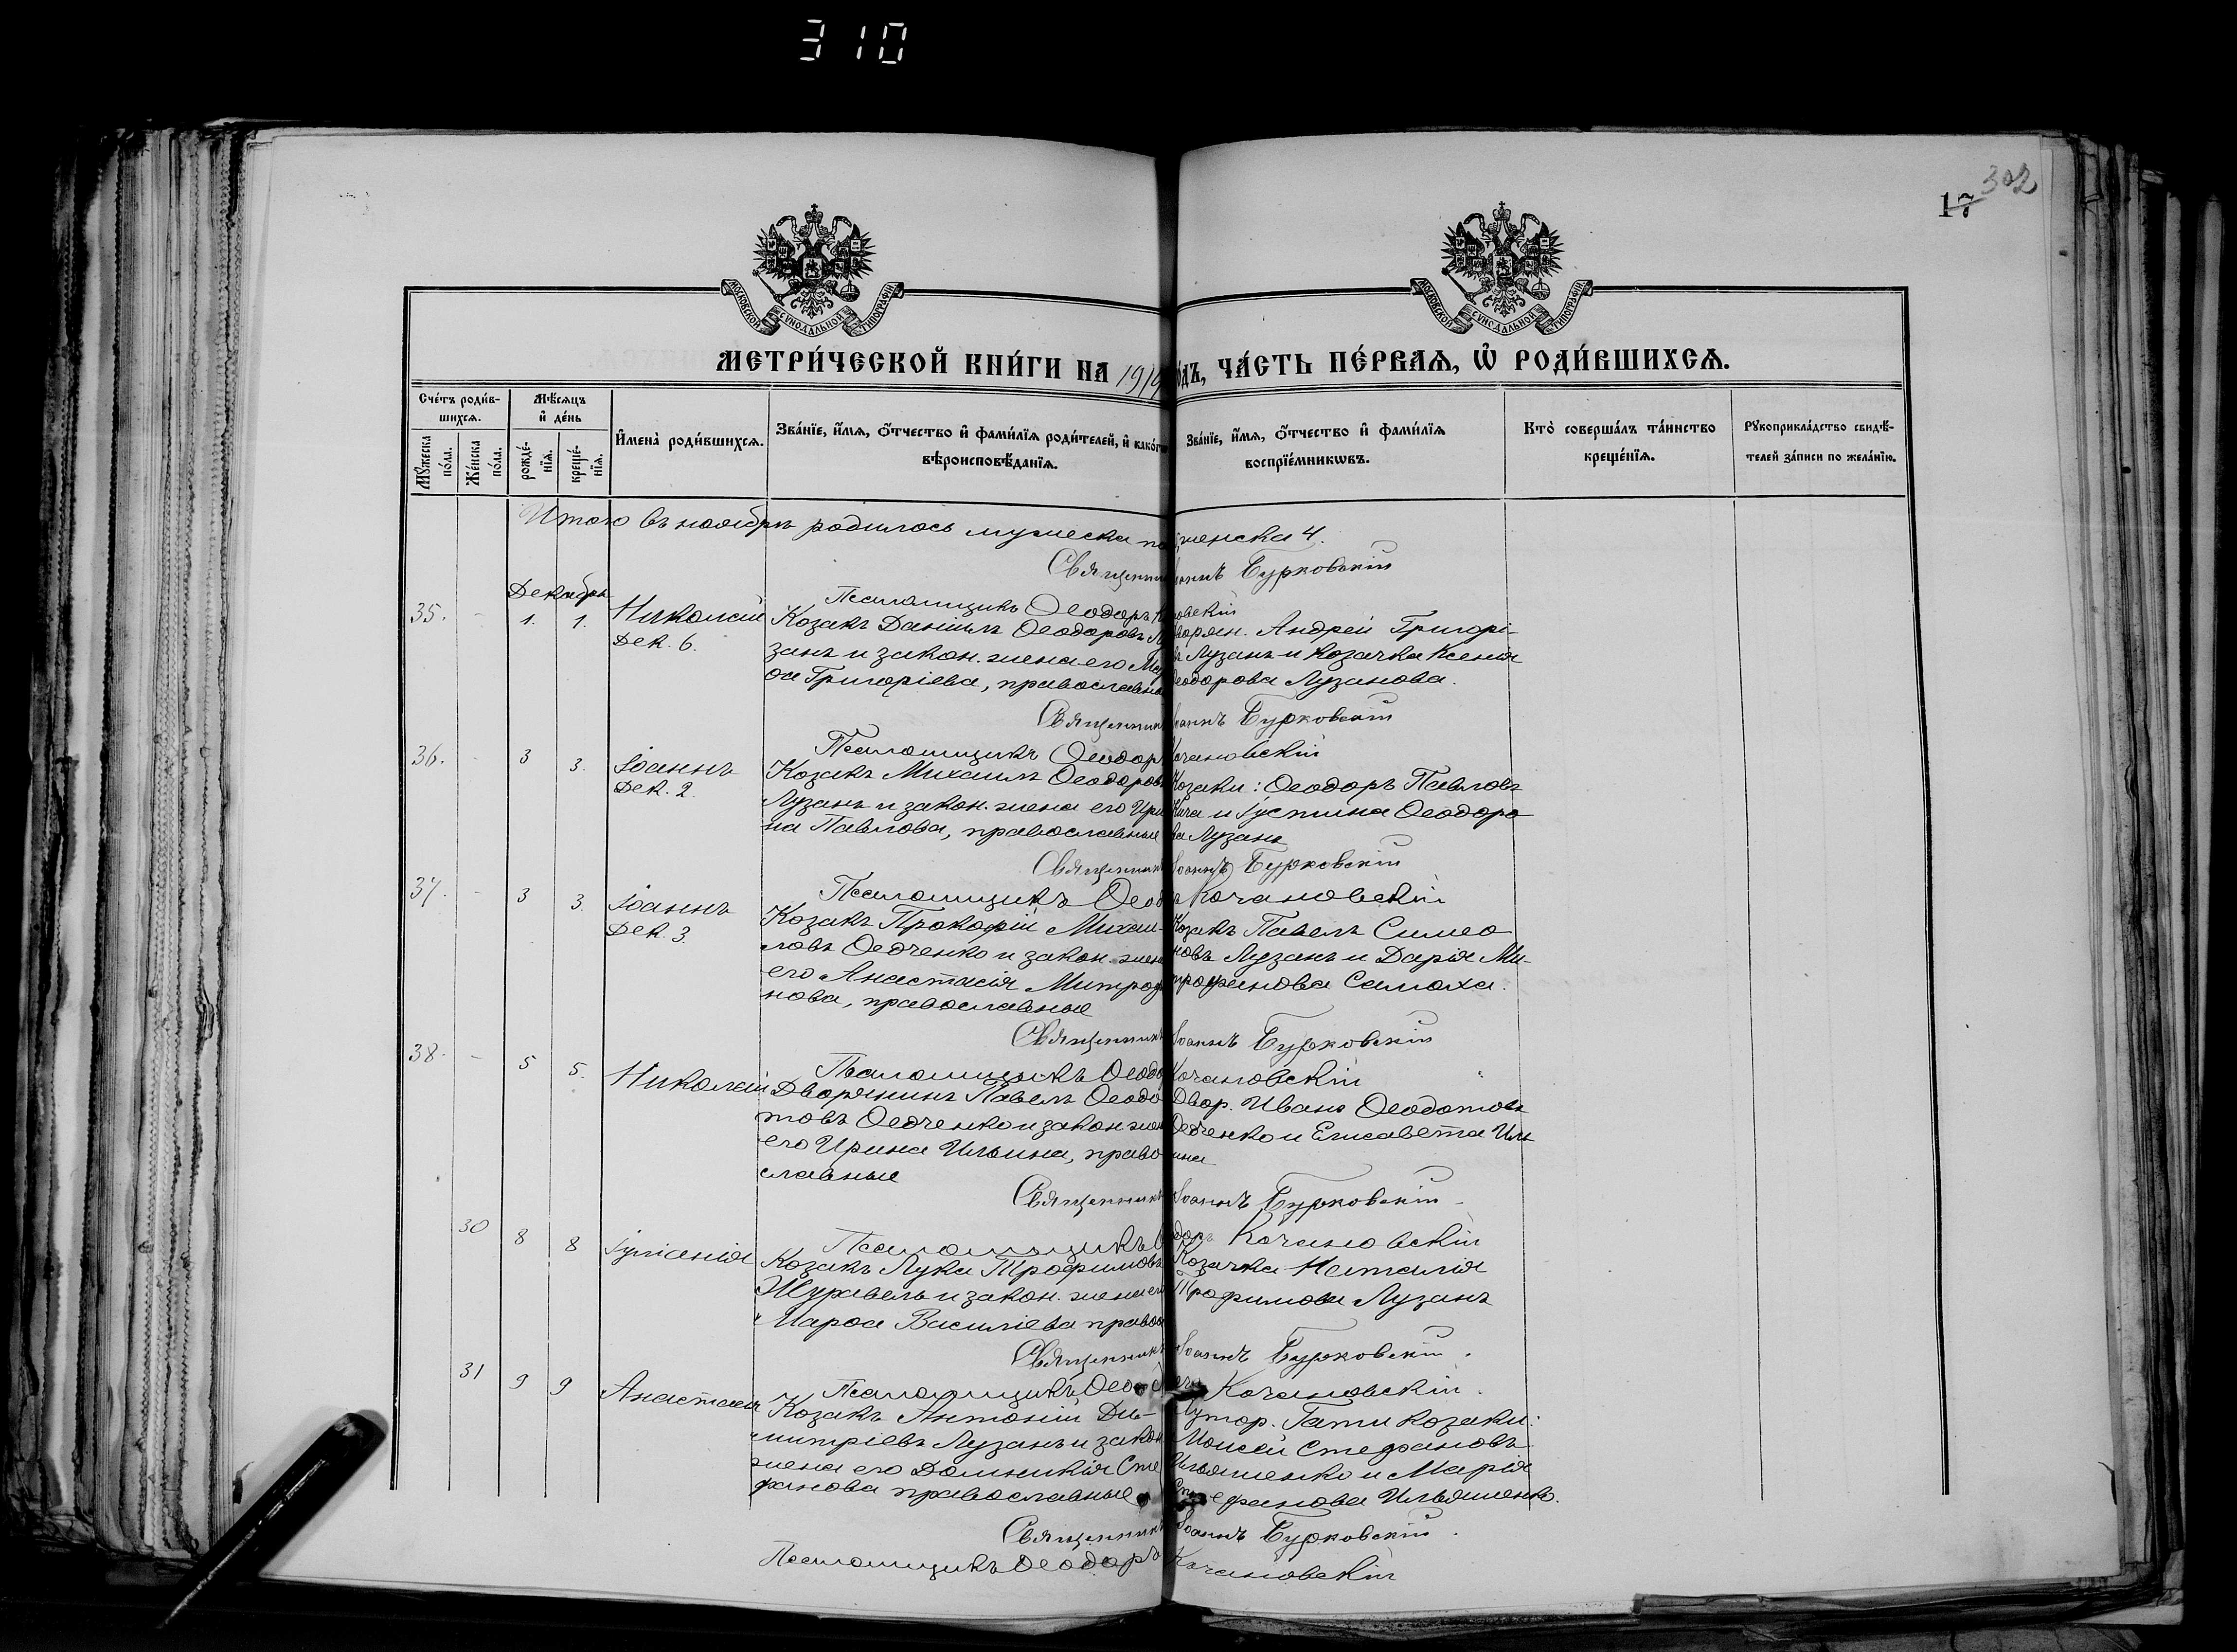 310
302
17
МОСКОВСКОЙ СУНОДАЛЬНОЙ ТИПОГРАФІИ
МОСКОВСКОЙ СУНОДАЛЬНОЙ ТИПОГРАФІИ
МЕТРИ́ЧЕСКОЙ КНИ́ГИ НА 191
ѻ́дъ, ЧА́СТЬ ПЕ́РВАѦ, Ѡ҆ РОДИ́ВШИХСѦ.
Сче́тъ роди́в-
шихсѧ.
Мѣ́сѧцъ
и҆ де́нь
Мꙋ́жеска по́ла.
Же́нска по́ла.
рожде́-
нїѧ.
креще́-
нїѧ.
И҆мена̀ роди́вшихсѧ.
Зва́нїе, и҆́мѧ, ѻ҆́тчество и҆ фами́лїѧ роди́телей, и҆ како́гѡ
вѣроисповѣ́данїѧ.
Зва́нїе, и҆́мѧ, ѻ҆́тчество и҆ фами́лїѧ
воспрїе́мникѡвъ.
Кто̀ соверша́лъ та́инство
креще́нїѧ.
Рꙋкоприкла́дство свидѣ́-
телей за́писи по жела́нїю.
Итого въ ноябрѣ родилось мужеска женска 4.
Священникъ Іоаннъ Бурковскій
Псаломщикъ Ѳеодоръ Кочановскій
Декабрь
35. - 1. 1. Николай
Дек. 6.
Козакъ Даніилъ Ѳеодоровъ Лу
занъ и закон. жена его Мар
ѳа Григоріева, православные
Дворян. Андрей Григорі-
евъ Лузанъ и козачка Ксенія
Ѳеодорова Лузанова.
Священникъ Іоаннъ Бурковскій
Псаломщикъ Ѳеодоръ Кочановскій
36. - 3 3. Іоаннъ
Дек. 2.
Козакъ Михаилъ Ѳеодоровъ
Лузанъ и закон. жена его Ири
на Павлова, православные
Козаки: Ѳеодоръ Павловъ
Кича и Іустина Ѳеодоро
ва Лузанъ
Священникъ Іоаннъ Бурковскій
Псаломщикъ Ѳеодоръ Кочановскій
37. - 3 3. Іоаннъ
Дек. 3.
Козакъ Прокофій Михаи-
ловъ Ѳедченко и закон. жена
его Анастасія Митрофа
нова, православные
Козакъ Павелъ Симео
новъ Лузанъ и Дарія Ми-
трофанова Самоха.
Священникъ Іоаннъ Бурковскій
Псаломщикъ Ѳеодоръ Кочановскій
38. - 5 5. Николай
Дворянинъ Павелъ Ѳеодо
товъ Ѳедченко и закон жена
его Ирина Ильина, право
славные
Двор. Иванъ Ѳеодотовъ
Ѳедченко и Елисавета Иль
ина
Священникъ Іоаннъ Бурковскій
Псаломщикъ Ѳеодоръ Кочановскій
30 8 8 Іуліанія
Козакъ Лука Трофимовъ
Журавель и закон. жена его
Марѳа Василіева правос
Козачка Наталія
Трофимова Лузанъ
Священникъ Іоаннъ Бурковскій.
Псаломщикъ Ѳеодоръ Кочановскій.
31 9 9 Анастасія
Козакъ Антоній Ди-
митріевъ Лузанъ и закон
жена его Домникія Сте
фанова православные
Хутор. Гати козаки:
Моисей Стефановъ
Ильяшенко и Марія
Стефанова Ильяшенко.
Священникъ Іоаннъ Бурковскій.
Псаломщикъ Ѳеодоръ Кочановскій